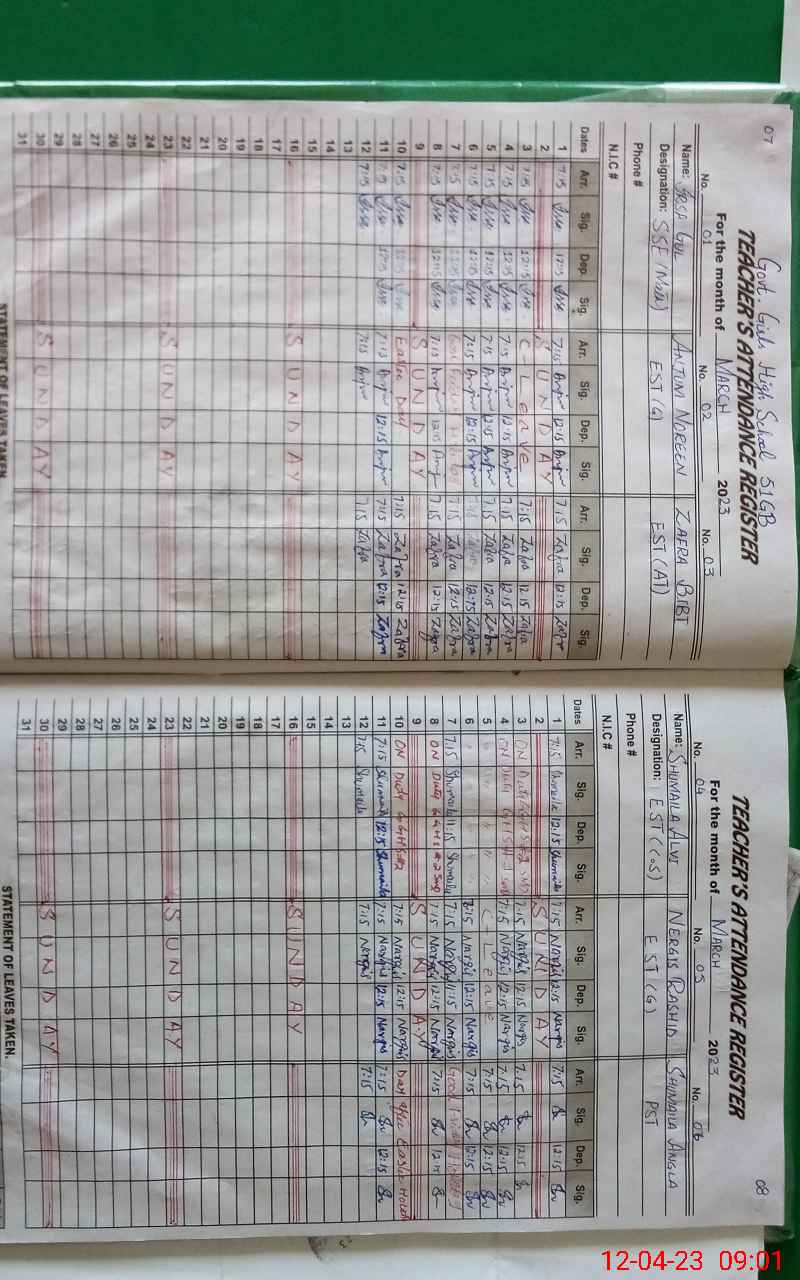 07
Govt. Girls High School 51GB
TEACHER'S ATTENDANCE REGISTER
For the month of MARCH 2023
No. 01 No. 02 No. 03
Name: IRSA GUL ANJUM NOREEN ZAFRA BIBI
Designation: SSE (Math) EST (G) EST (AT)
Phone #
N.I.C #
Dates Arr. Sig. Dep. Sig. Arr. Sig. Dep. Sig. Arr. Sig. Dep. Sig.
1 7:15 12:15 7:15 Anjum 12:15 Anjum 7:15 Zafra 12:15 Zafra
2 SUNDAY
3 7:15 12:15 C - Leave 7:15 Zafra 12:15 Zafra
4 7:15 12:15 7:15 Anjum 12:15 Anjum 7:15 Zafra 12:15 Zafra
5 7:15 12:15 7:15 Anjum 12:15 Anjum 7:15 Zafra 12:15 Zafra
6 7:15 12:15 7:15 Anjum 12:15 Anjum 7:15 Zafra 12:15 Zafra
7 7:15 12:15 7:15 Zafra 12:15 Zafra
8 7:15 12:15 7:15 Anjum 12:15 Anjum 7:15 Zafra 12:15 Zafra
9 SUNDAY
10 7:15 12:15 Easter 7:15 Zafra 12:15 Zafra
11 7:15 12:15 7:15 Anjum 12:15 Anjum 7:15 Zafra 12:15 Zafra
12 7:15 7:15 Anjum 7:15 Zafra
13
14
15
16 SUNDAY
17
18
19
20
21
22
23 SUNDAY
24
25
26
27
28
29
30 SUNDAY
31
STATEMENT OF LEAVES TAKEN
08
TEACHER'S ATTENDANCE REGISTER
For the month of MARCH 2023
No. 04 No. 05 No. 06
Name: SHUMAILA ALVI NERGIS RASHID SHUMAILA ANGLA
Designation: EST (C.S) EST (G) PST
Phone #
N.I.C #
Dates Arr. Sig. Dep. Sig. Arr. Sig. Dep. Sig. Arr. Sig. Dep. Sig.
1 7:15 Shumaila 12:15 Shumaila 7:15 Nargis 12:15 Nargis 7:15 12:15
2 SUNDAY
3 ON Duty 7:15 Nargis 12:15 Nargis 7:15 12:15
4 ON Duty 7:15 Nargis 12:15 Nargis 7:15 12:15
5 C - Leave 7:15 12:15
6 7:15 Nargis 12:15 Nargis 7:15 12:15
7 7:15 Shumaila 11:15 Shumaila 7:15 Nargis 11:15 Nargis Good Friday
8 ON Duty 7:15 Nargis 12:15 Nargis 7:15 12:15
9 SUNDAY
10 ON Duty 7:15 Nargis 12:15 Nargis Day after Easter
11 7:15 Shumaila 12:15 Shumaila 7:15 Nargis 12:15 Nargis 7:15 12:15
12 7:15 Shumaila 7:15 Nargis 7:15
13
14
15
16 SUNDAY
17
18
19
20
21
22
23 SUNDAY
24
25
26
27
28
29
30 SUNDAY
31
STATEMENT OF LEAVES TAKEN.
12-04-23 09:01